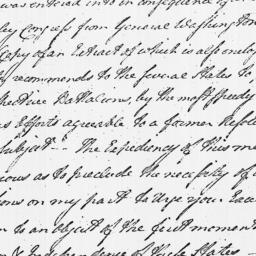 was entered into in consequence of
by Congress from General Washington
Copy of an Extract of which is also enclo
ly recommends to the several States to
spective Battalions, by the most speedy
as Efforts agreeable to a former Resol
Subject -- The Expediency of this me
ious as to preclude the necessity of
ions on my part to urge your Exce
n to an object of the first moment
& Independence of these States